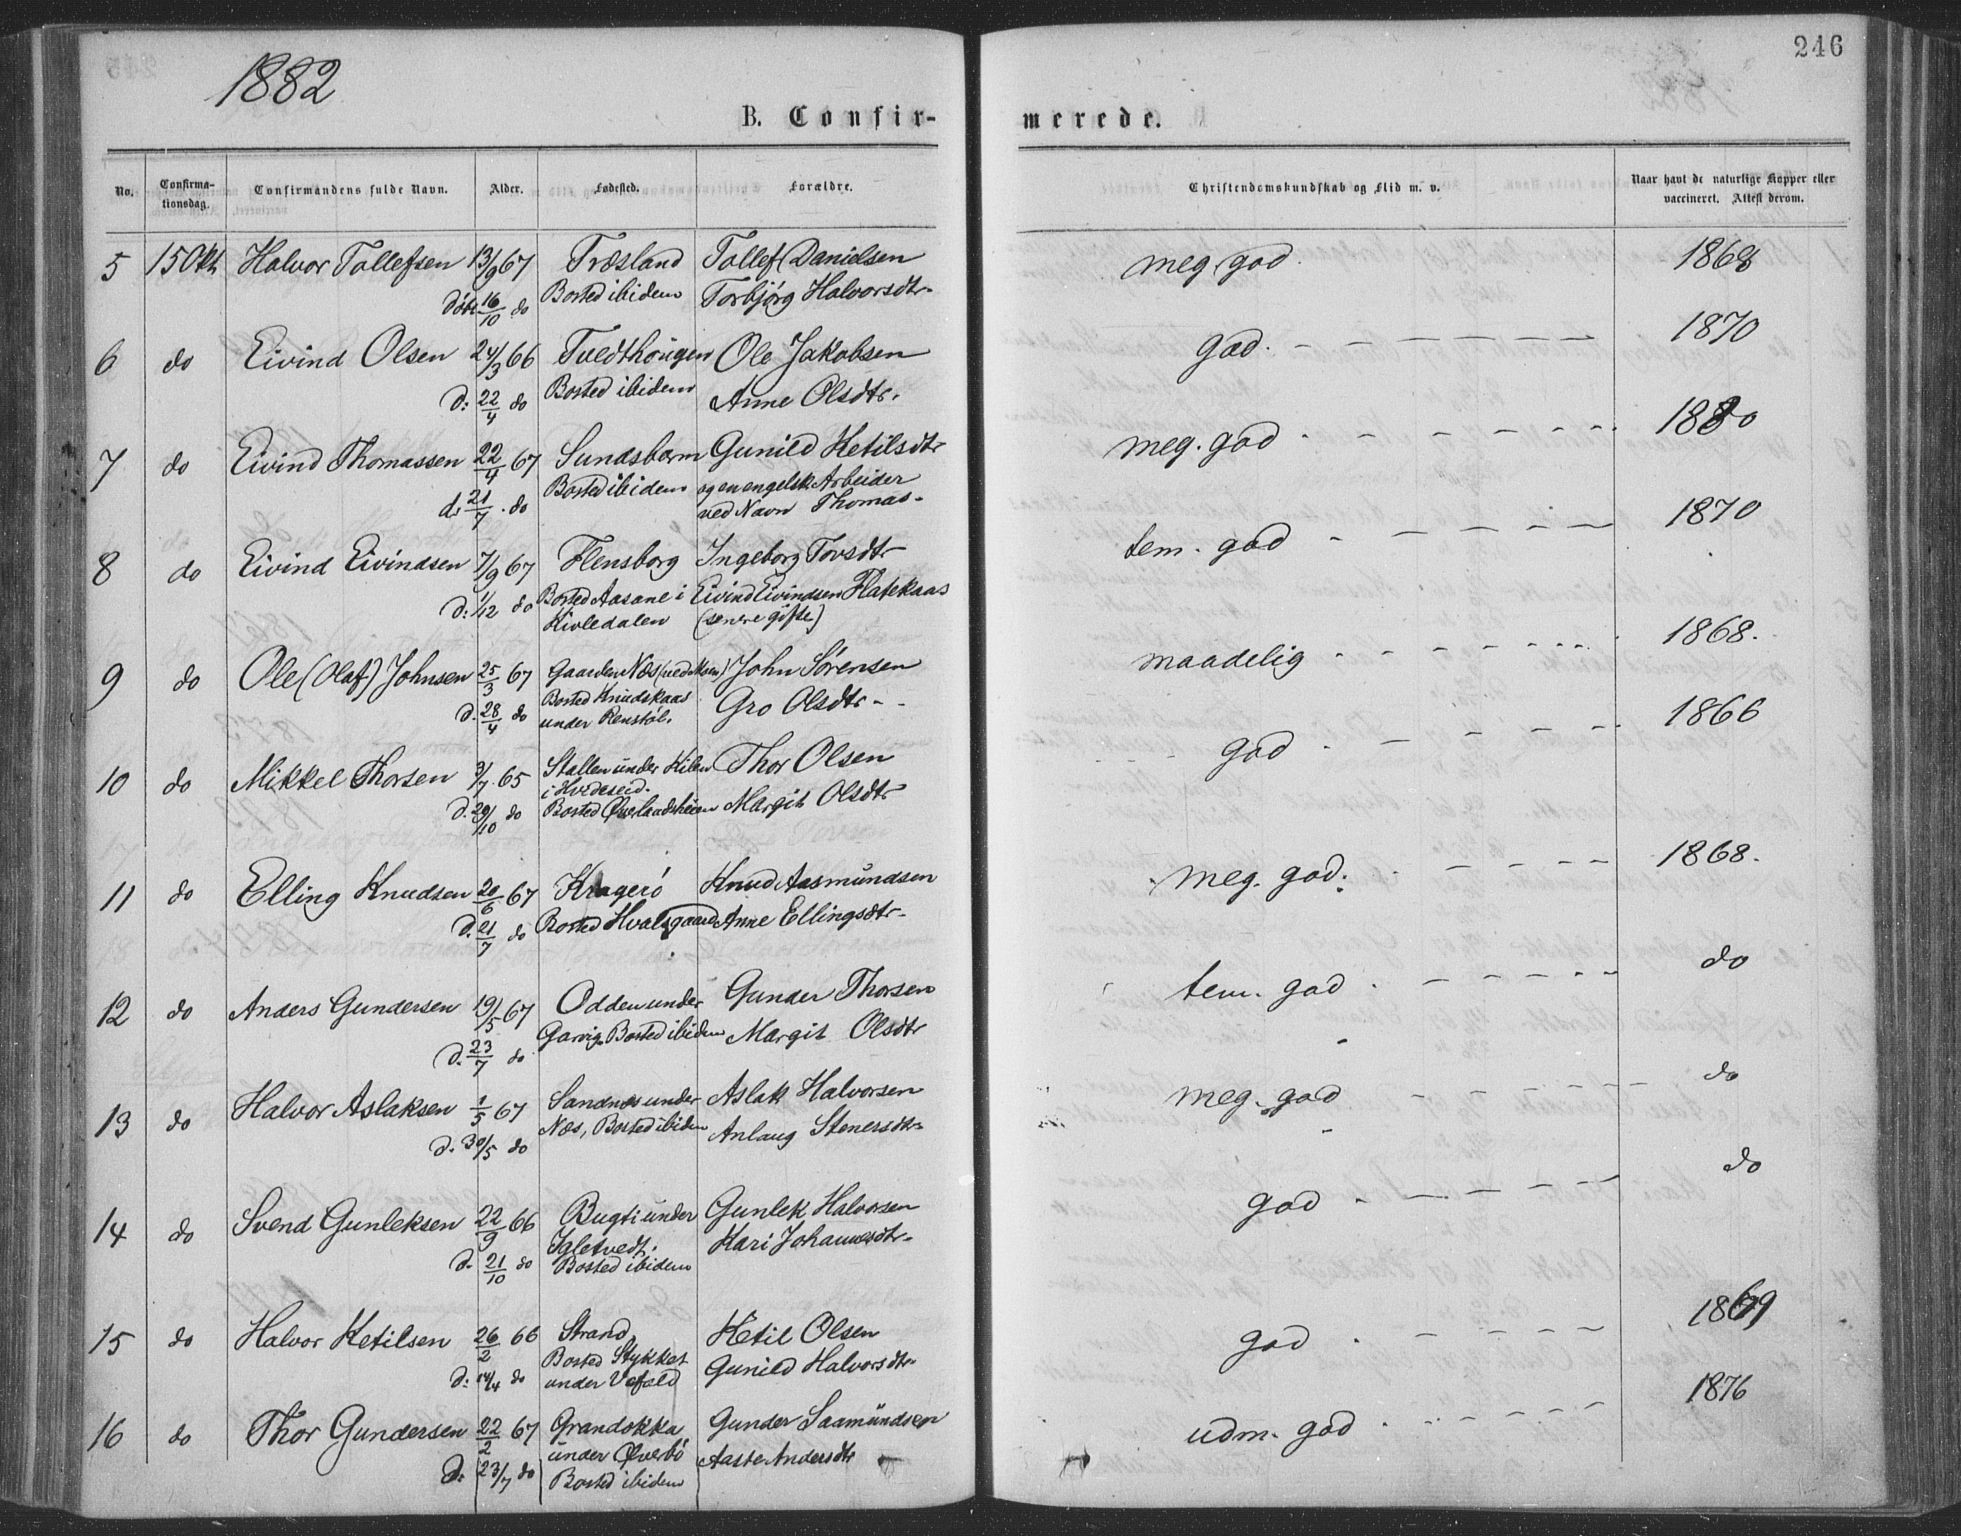 1882
246
B. Confir-
merede.
No.
Confirma-
tionsdag.
Confirmandens fulde Navn.
Alder.
Fødested.
Forældre.
Christendomskundskab og Flid m. v.
Naar havt de naturlige Kopper eller
vaccineret. Attest derom.
5 15 Okt Halvor Tollefsen 13/9 67 Træsland Tollef Danielsen meg. god. 1868
Döbt 16/10 do Bosted ibidem Torbjörg Halvorsdtr.
6 do Eivind Olsen 24/3 66 Tvedthougen Ole Jakobsen god. 1870
D: 22/4 do Bosted ibidem Anne Olsdtr.
7 do Eivind Thomassen 22/4 67 Sundsbarm Gunild Ketilsdtr meg. god 1880
d. 21/7 do Bosted ibidem og en engelsk Arbeider
ved Navn Thomas.
8 do Eivind Eivindsen 7/9 67 Flensborg Ingeborg Tovsdtr tem. god 1870
D: 1/12 do Bosted Aasane i Eivind Eivindsen Flatekaas
Kivledalen (senere gifte)
9 do Ole (Olaf) Johnsen 25/3 67 Gaarden Næs John Sörensen maadelig 1868.
d. 28/4 do Bosted Knudskaas Gro Olsdtr
under Renstöl.
10 do Mikkel Thorsen 3/7 65 Stallen under Kilen Thor Olsen god 1866
i Hvideseid.
D. 29/10 do Bosted Øverlandsheien Margit Olsdtr
11 do Elling Knudsen 20/6 67 Kragerö Knud Aasmundsen meg. god. 1868.
D. 21/7 do Bosted Hvalsgaard Anne Ellingsdtr.
12 do Anders Gundersen 19/5 67 Odden under Gunder Thorsen tem. god do
D. 23/7 do Garvig. Bosted ibidem Margit Olsdtr
13 do Halvor Aslaksen 1/5 67 Sandnes under Aslak Halvorsen meg. god do
D. 30/5 do Næs, Bosted ibidem Anlaug Stenersdtr
14 do Svend Gunleksen 22/9 66 Bugti under Gunlek Halvorsen god do
Igletvedt. Kari Johannesdtr.
D. 21/10 do Bosted ibidem
15 do Halvor Ketilsen 26/2 66 Strand Ketil Olsen god 1869
Bosted Stykket Gunild Halvorsdtr.
D: 14/4 do under Vefald
16 do Thor Gundersen 22/2 67 Grandokka Gunder Saamundsen udm. god 1876
under Øverbö Aaste Andersdtr
D. 23/7 do Bosted ibidem